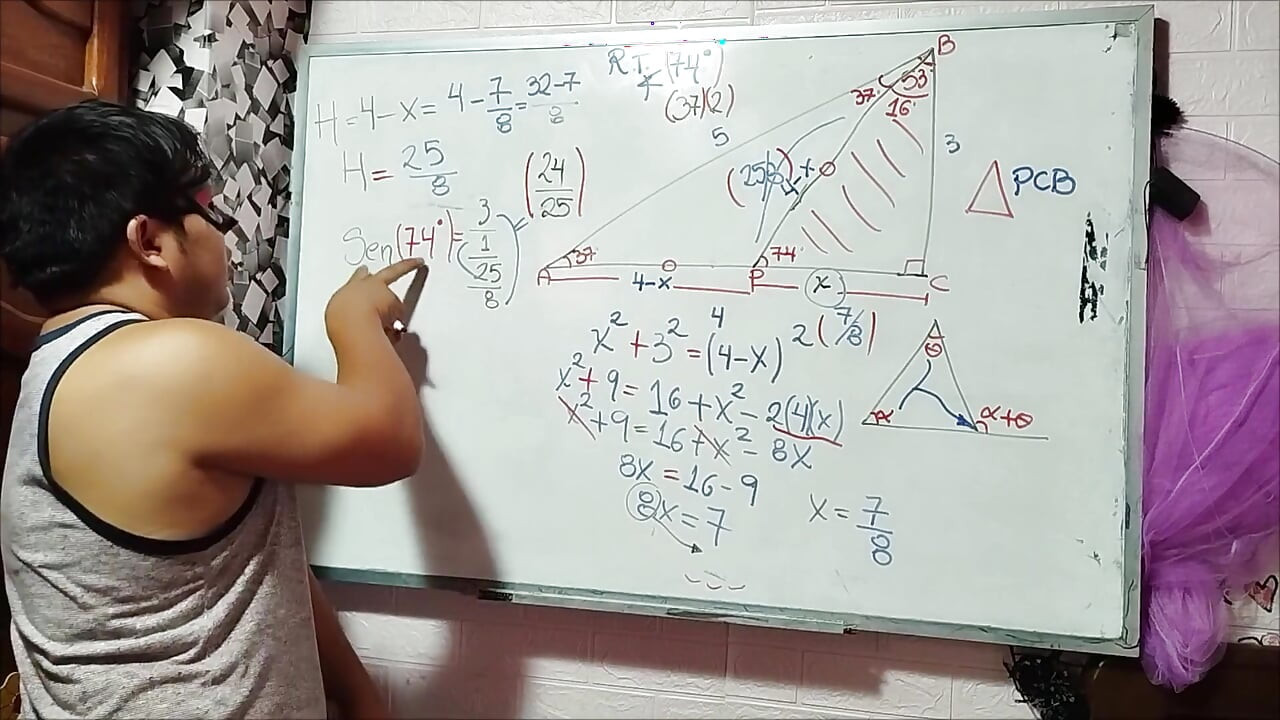 H = 4 - x = 4 - 7/8 = 32-7/8
H = 25/8
Sen(74°) = 3/1/25/8 = (24/25)
R.T. ∡ (74°)
(37)(2)
B
37°
53°
16°
5
3
(25/8)
4-x
△ PCB
37°
74°
A
4-x
P
x
C
4
(7/8)
x² + 3² = (4-x)²
x² + 9 = 16 + x² - 2(4)(x)
x² + 9 = 16 + x² - 8x
8x = 16 - 9
8x = 7
x = 7/8
θ
α
α+θ